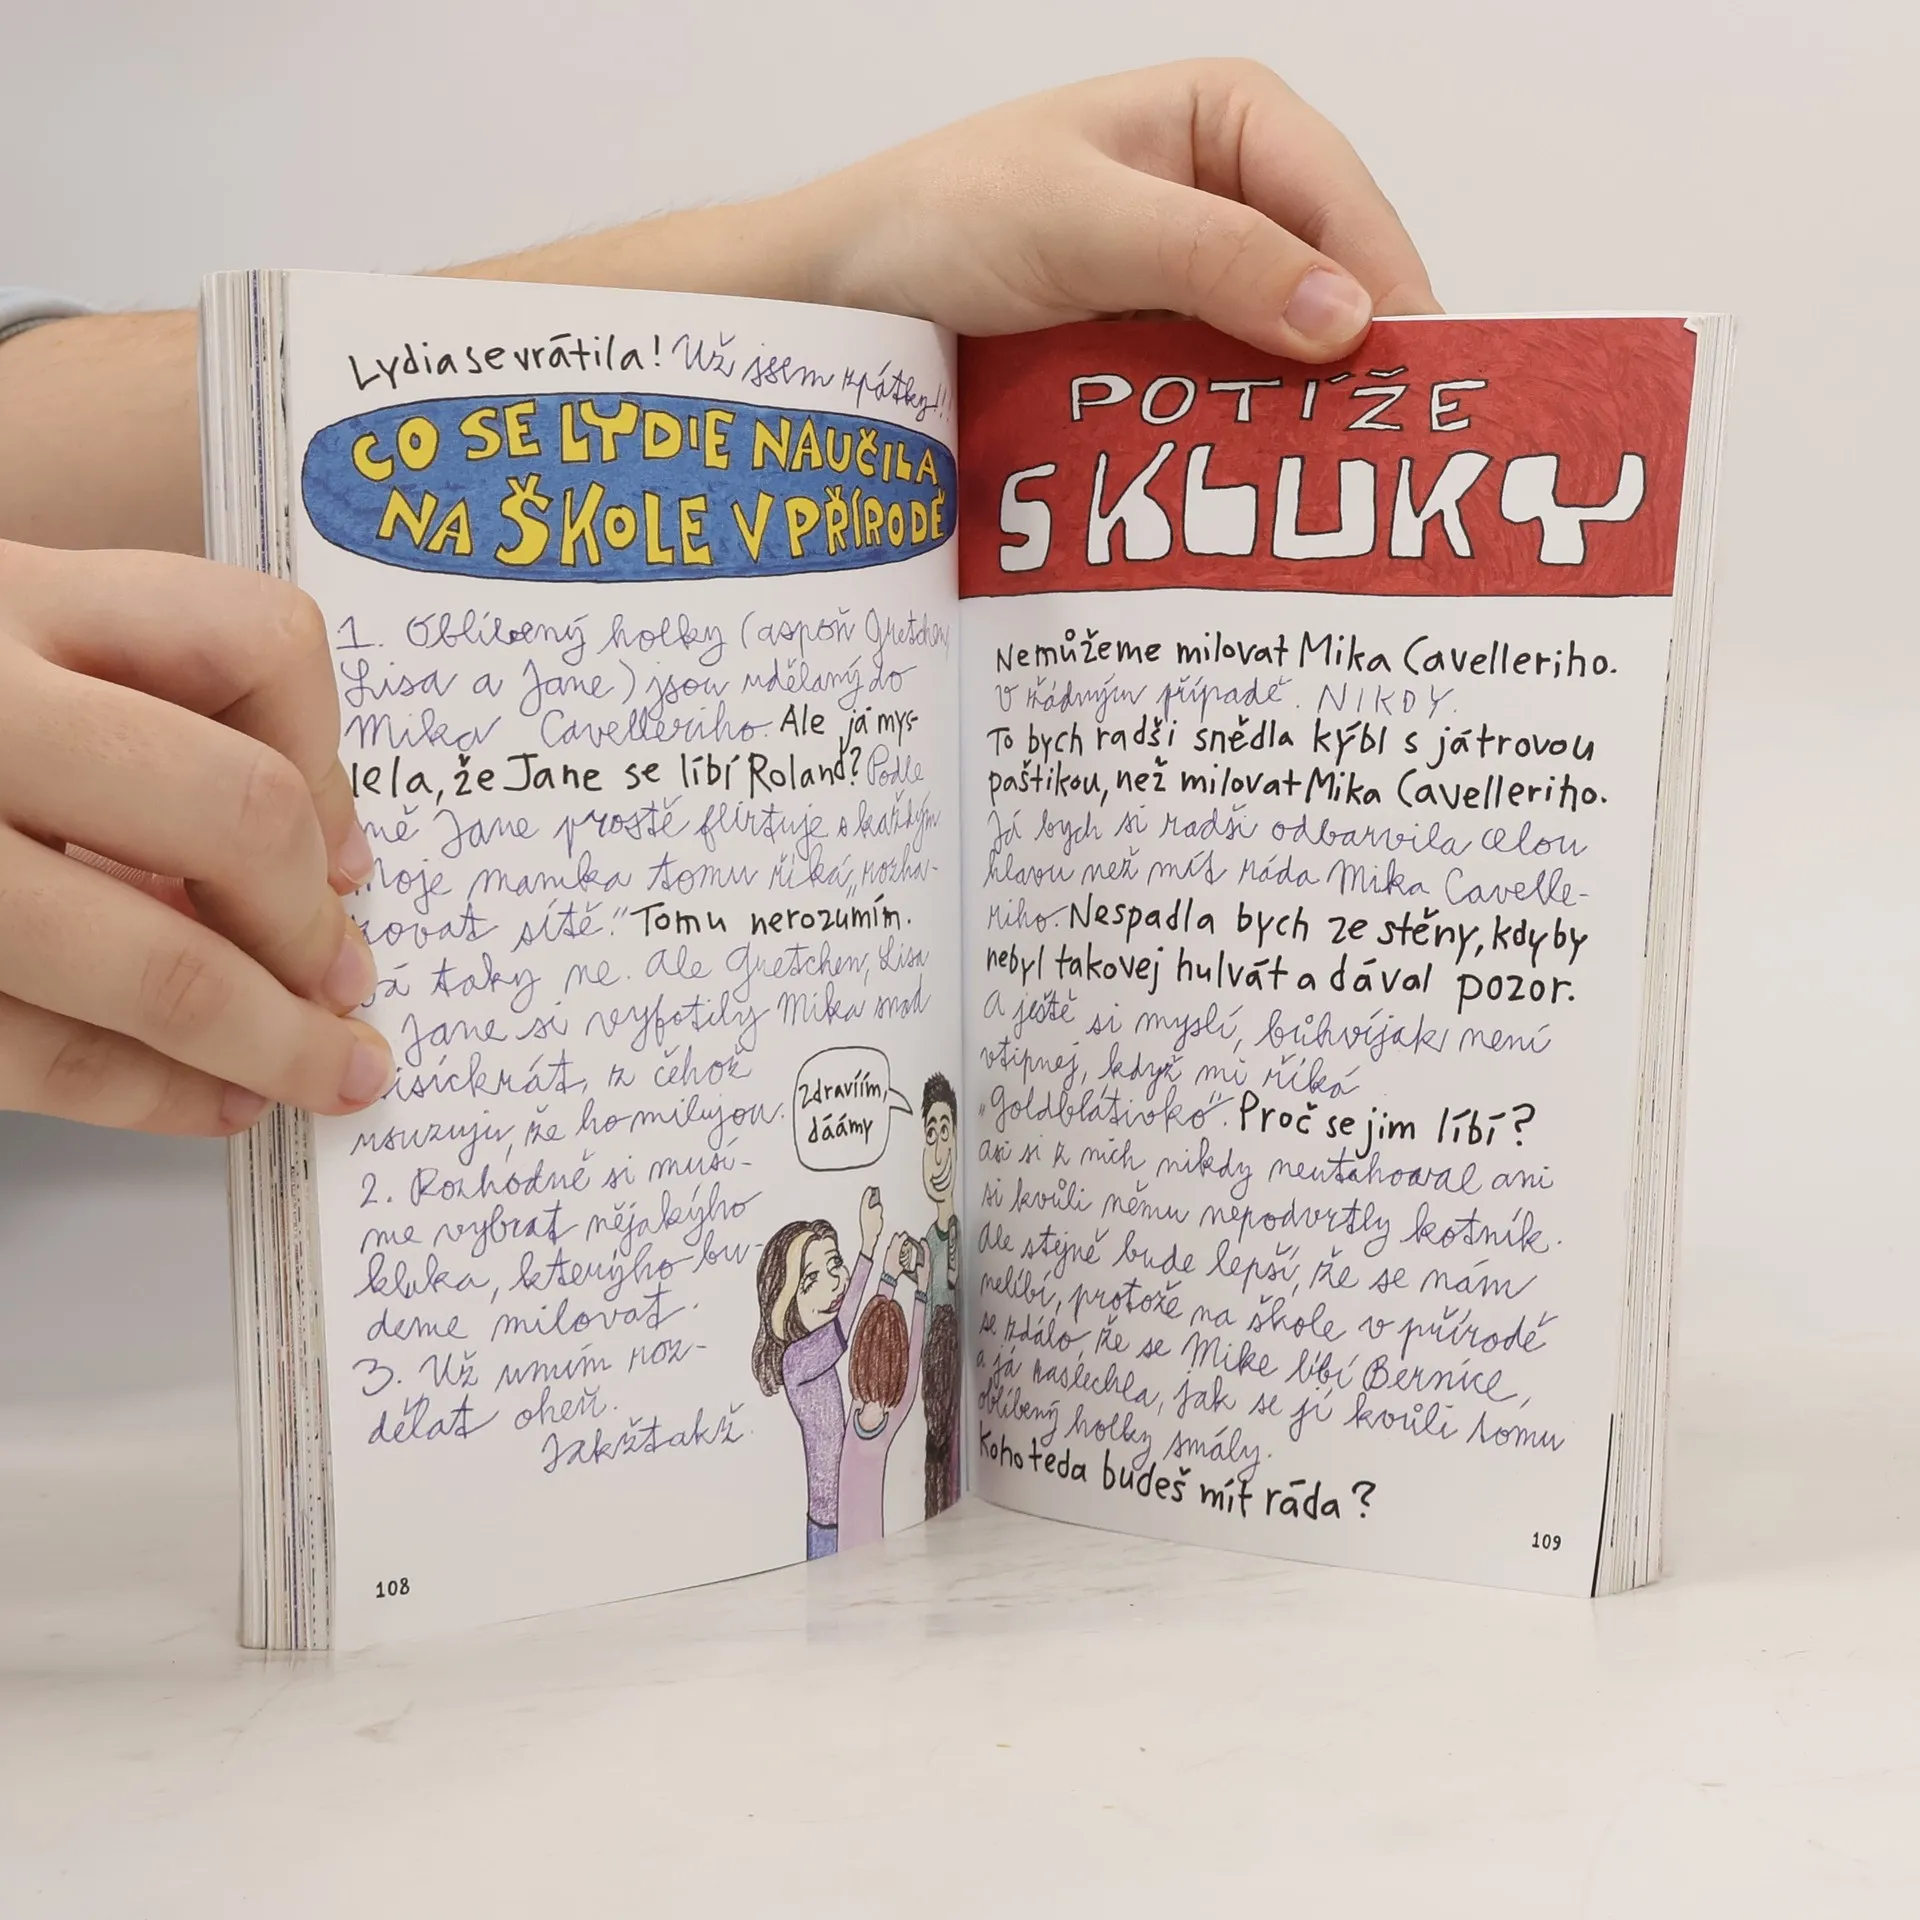 Lydia se vrátila! Už jsem zpátky!!!
CO SE LYDIE NAUČILA
NA ŠKOLE V PŘÍRODĚ
1. Oblíbený holky (aspoň Gretchen,
Lisa a Jane) jsou udělaný do
Mika Cavelleriho. Ale já mys-
lela, že Jane se líbí Roland? Podle
mě Jane prostě flirtuje s každým
Moje mamka tomu říká „rozha-
zovat sítě." Tomu nerozumím.
Já taky ne. Ale Gretchen, Lisa
Jane si vyfotily Mika snad
tisíckrát, z čehož
usuzuju, že ho milujou.
2. Rozhodně si musí-
me vybrat nějakýho
kluka, kterýho bu-
deme milovat.
3. Už umím roz-
dělat oheň.
Jakžtakž.
Zdravíím,
dáámy
108
POTÍŽE
S KLUKY
Nemůžeme milovat Mika Cavelleriho.
V žádným případě. NIKDY.
To bych radši snědla kýbl s játrovou
paštikou, než milovat Mika Cavelleriho.
Já bych si radši odbarvila celou
hlavu než mít ráda Mika Cavelle-
riho. Nespadla bych ze stěny, kdyby
nebyl takovej hulvát a dával pozor.
A ještě si myslí, bůhvíjak není
vtipnej, když mi říká
„Goldblátivko". Proč se jim líbí?
Asi si z nich nikdy neutahoval ani
si kvůli němu nepodvrtly kotník.
Ale stejně bude lepší, že se nám
nelíbí, protože na škole v přírodě
se zdálo, že se Mike líbí Bernice,
a já zaslechla, jak se jí kvůli tomu
oblíbený holky smály.
Koho teda budeš mít ráda?
109